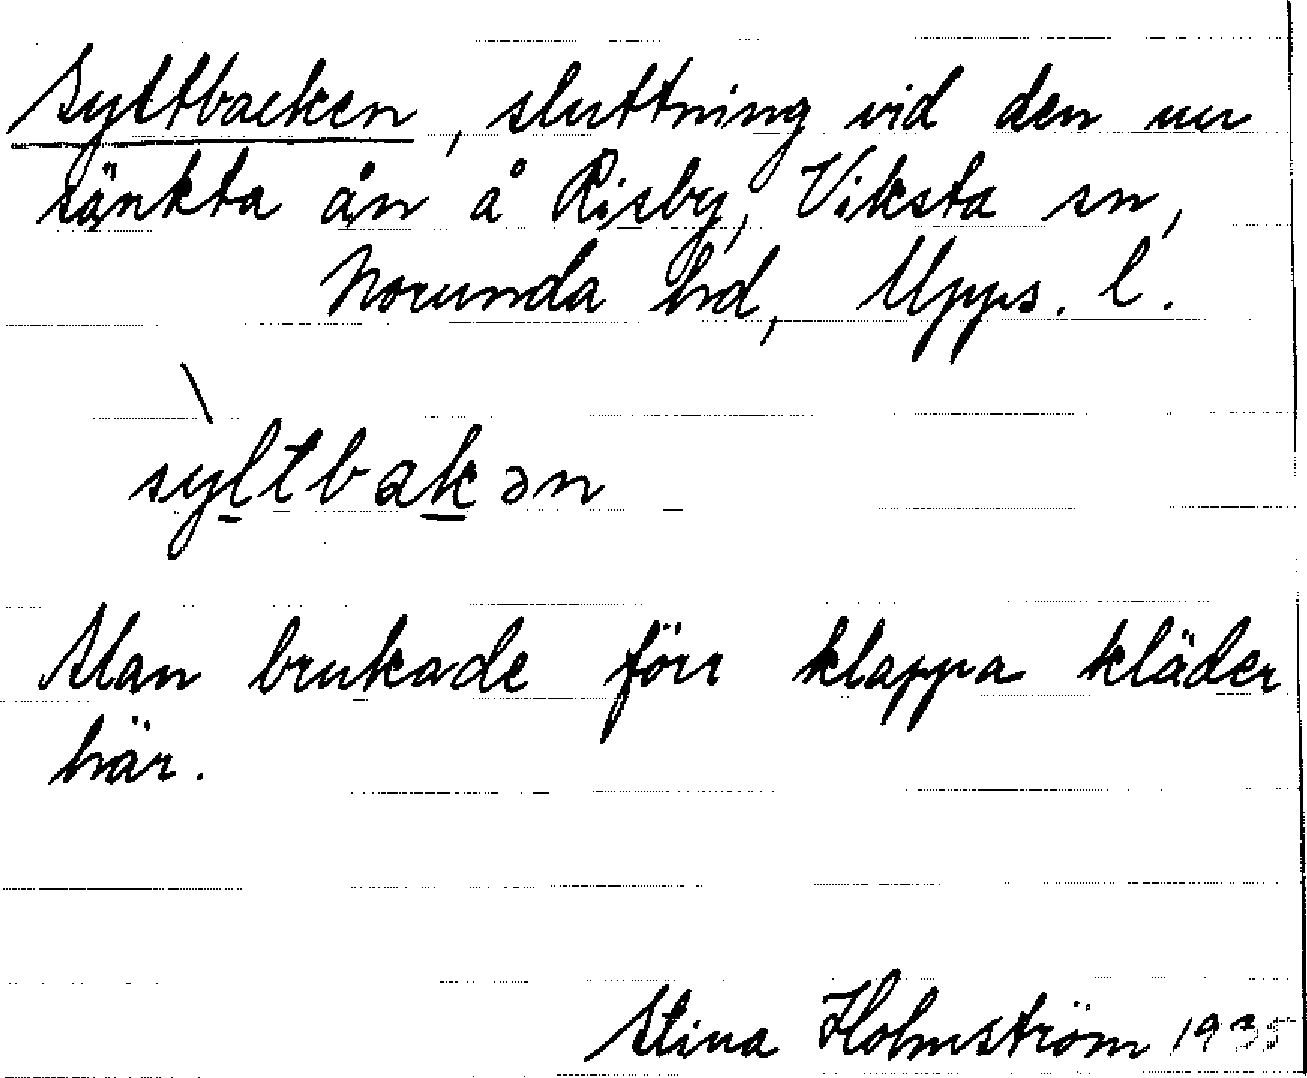 Syltbacken, sluttning vid den nu
sänkta ån å Risby, Viksta sn,
Norunda hd, Upps. l.
syltbakən
Man brukade förr klappa kläder
här.
Stina Holmström 1935